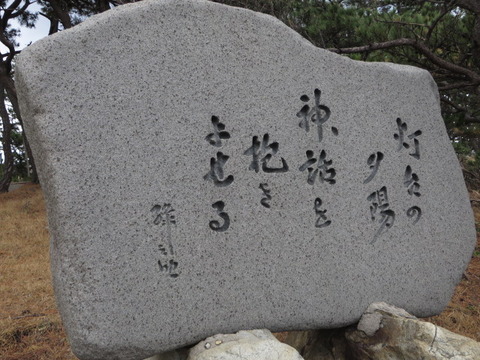 灯台の
夕陽
神話を
抱き
よせる